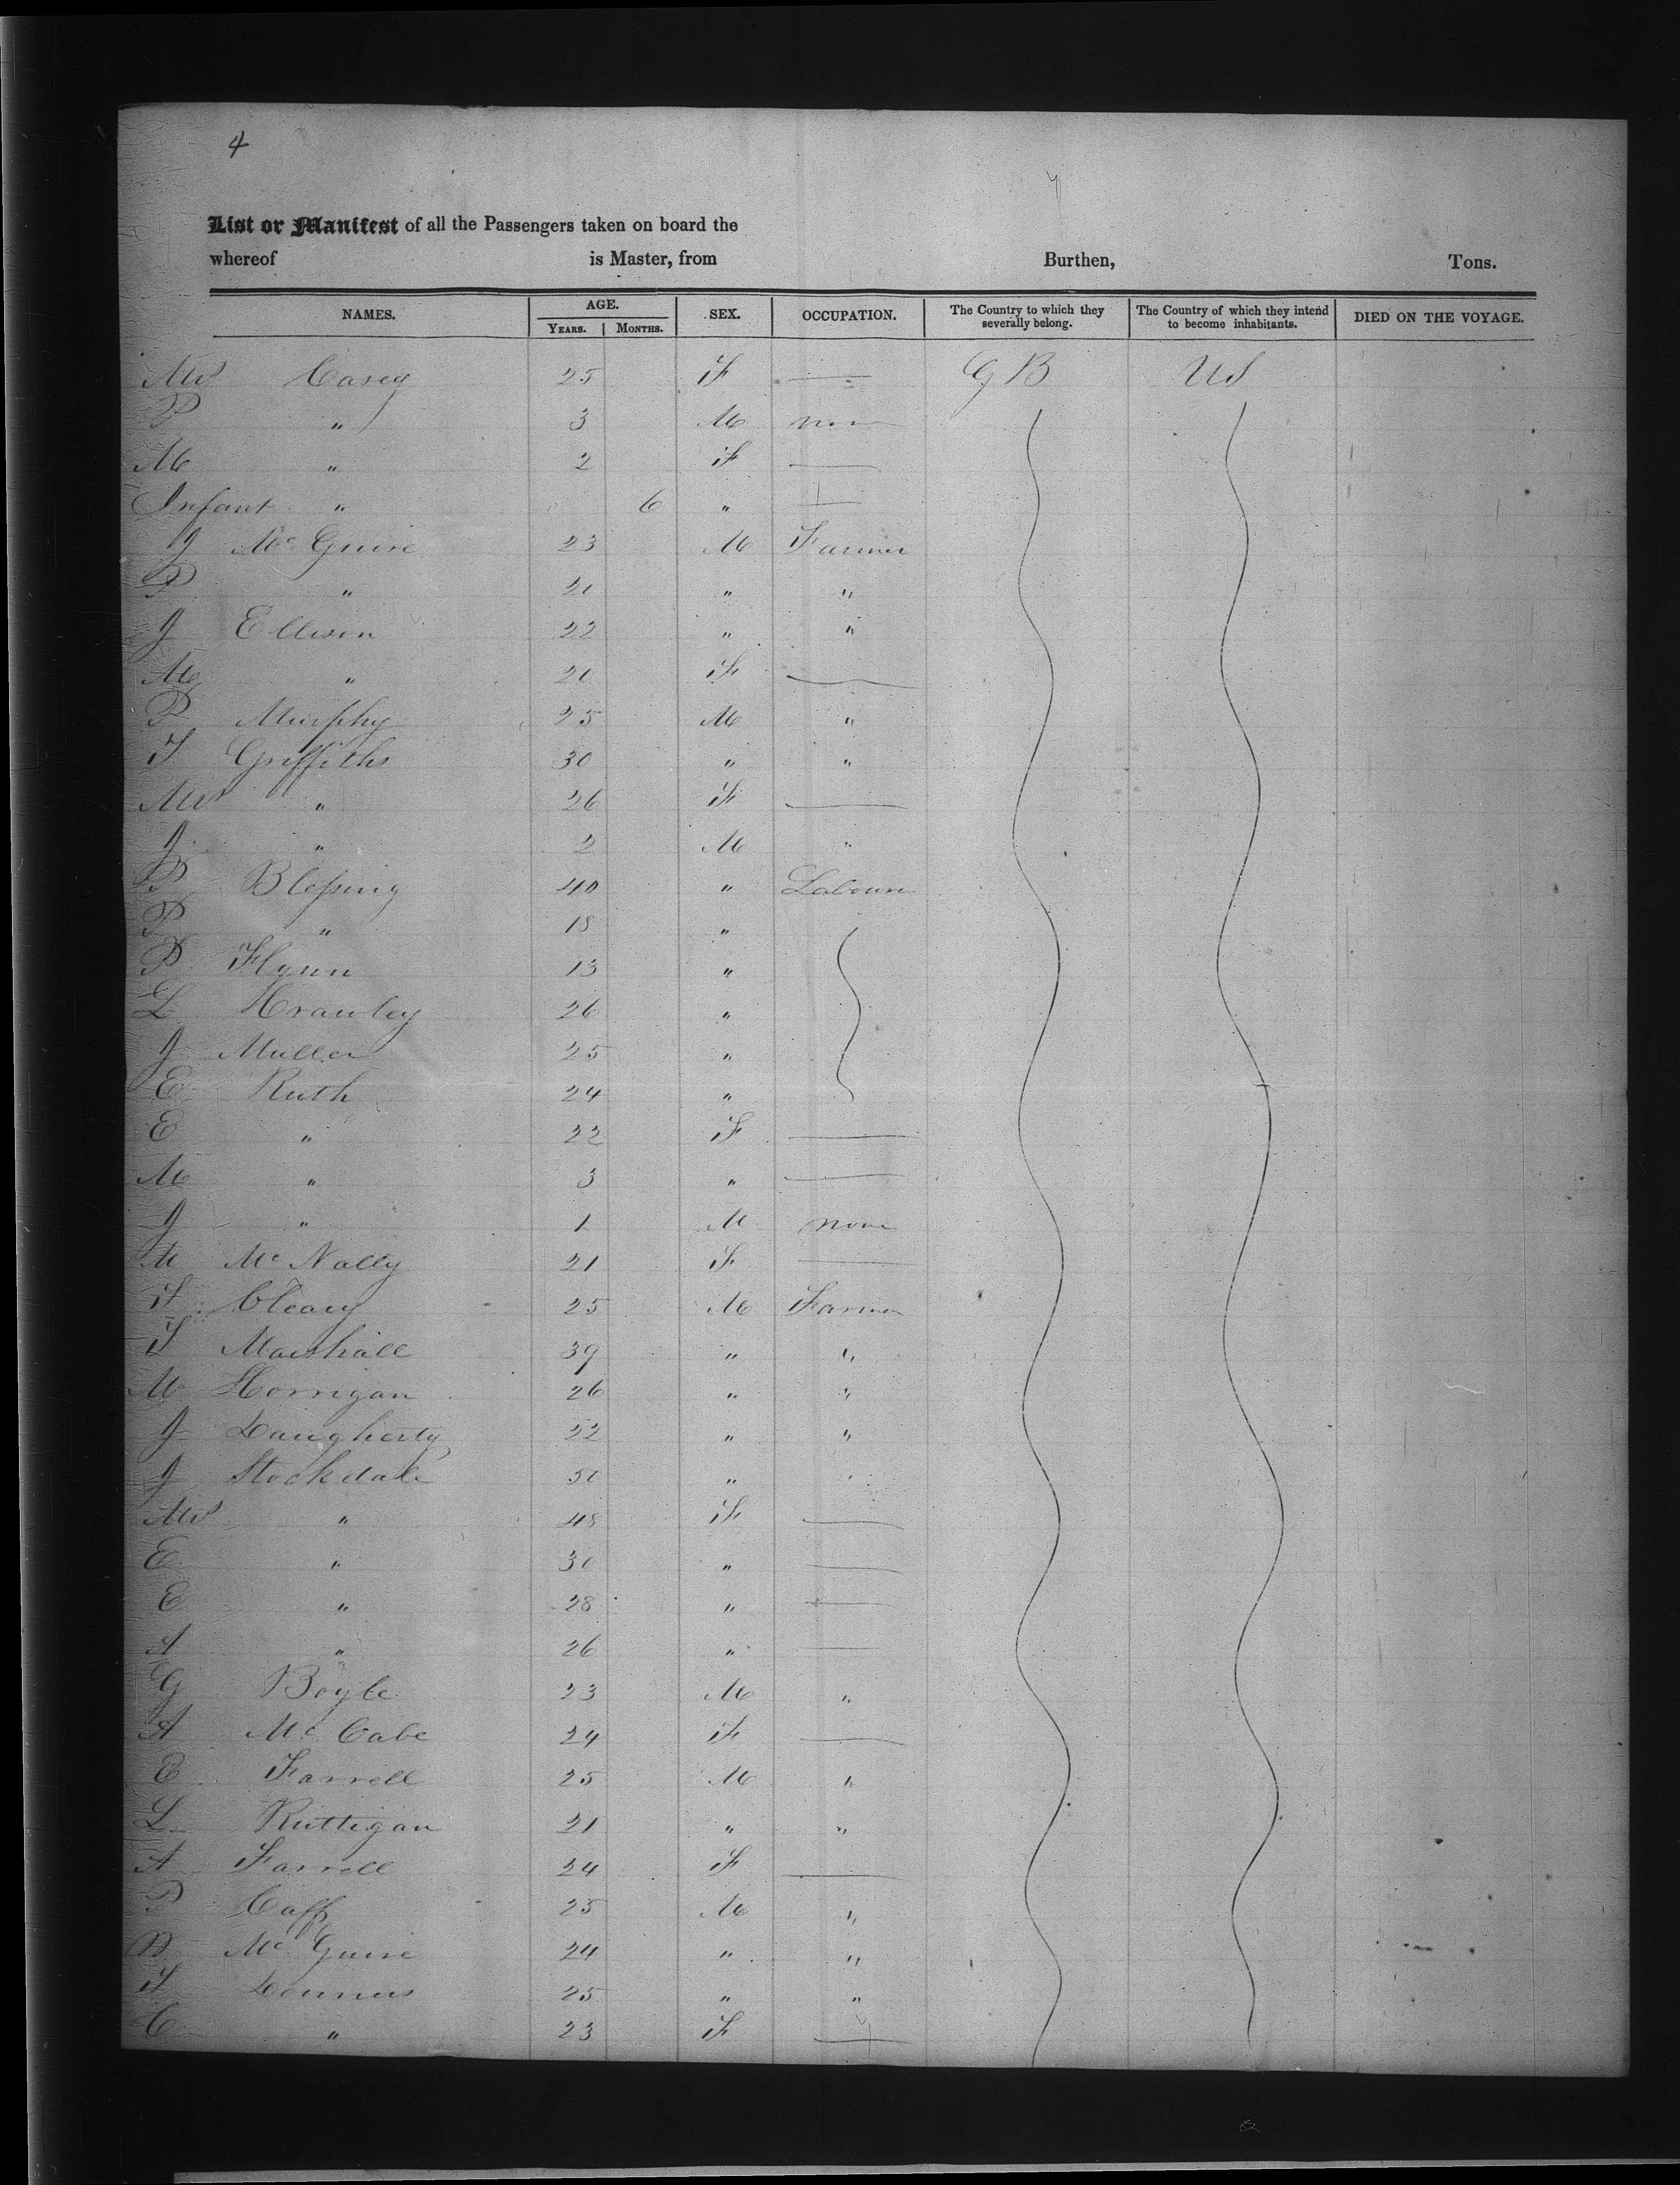 4
List or Manifest of all the Passengers taken on board the
whereof is Master, from Burthen, Tons.
NAMES. AGE. SEX. OCCUPATION. The Country to which they severally belong. The Country of which they intend to become inhabitants. DIED ON THE VOYAGE.
YEARS. MONTHS.
Mrs Casey 25 F — G B U S
P " 3 M none
M " 2 F —
Infant " 6 " —
J McGuire 23 M Farmer
P " 21 " "
J Ellison 22 " "
M " 20 F —
P Murphy 25 M "
T Griffiths 30 " "
Mrs " 26 F —
J " 2 M "
P Blessing 40 " Labourer
P " 18 "
P Flynn 13 "
L Crawley 26 "
J Muller 25 "
E Ruth 24 "
E " 22 F —
M " 3 " —
J " 1 M none
M McNally 21 F —
T Cleary 25 M Farmer
T Marshall 39 " "
M Horrigan 26 " "
J Daugherty 22 " "
J Stockdale 50 " "
Mrs " 48 F —
E " 30 " —
E " 28 " —
A " 26 " —
G Boyle 23 M "
A McCabe 24 F —
E Farrell 25 M "
L Ruttigan 21 " "
A Farrell 24 F —
P Caff 25 M "
McGuire 24 " "
T 25 " "
C " 23 F —